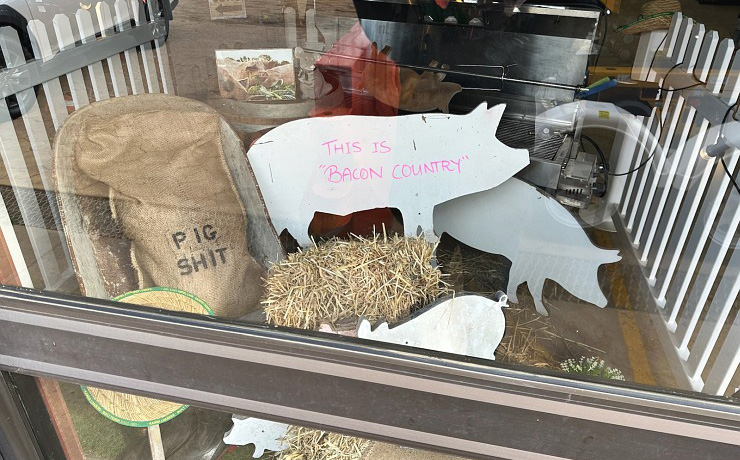 THIS IS
"BACON COUNTRY"
PIG
SHIT